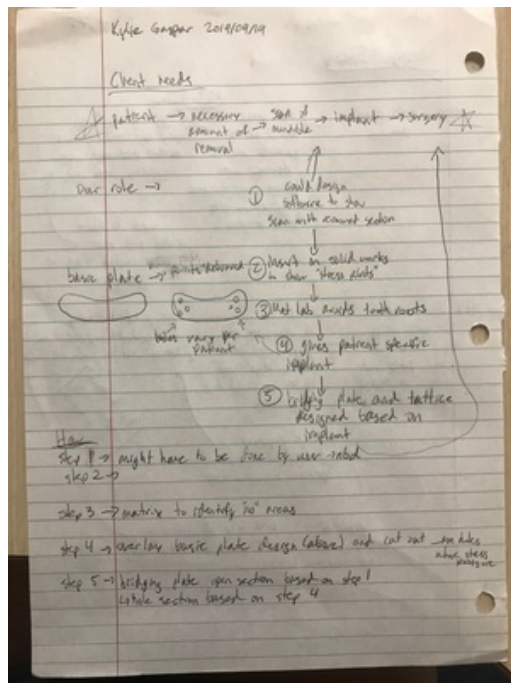 Kylie Gaspar 2019/09/19
Client needs
☆ patient → necessary amount of removal → scan of mandible → implant → surgery ☆
our role →
① could design
software to show
scan with removed section
② Insert in solid works
to show "stress points"
basic plate →
holes vary per
patient
③ Mat lab avoids tooth roots
④ gives patient specific
implant
⑤ bridging plate and lattice
designed based on
implant
How
step 1 → might have to be done by user
step 2 →
step 3 → matrix to identify "no" areas
step 4 → overlay basic plate design (above) and cut out
holes
where stress
points are
step 5 → bridging plate open section based on step 1
whole section based on step 4